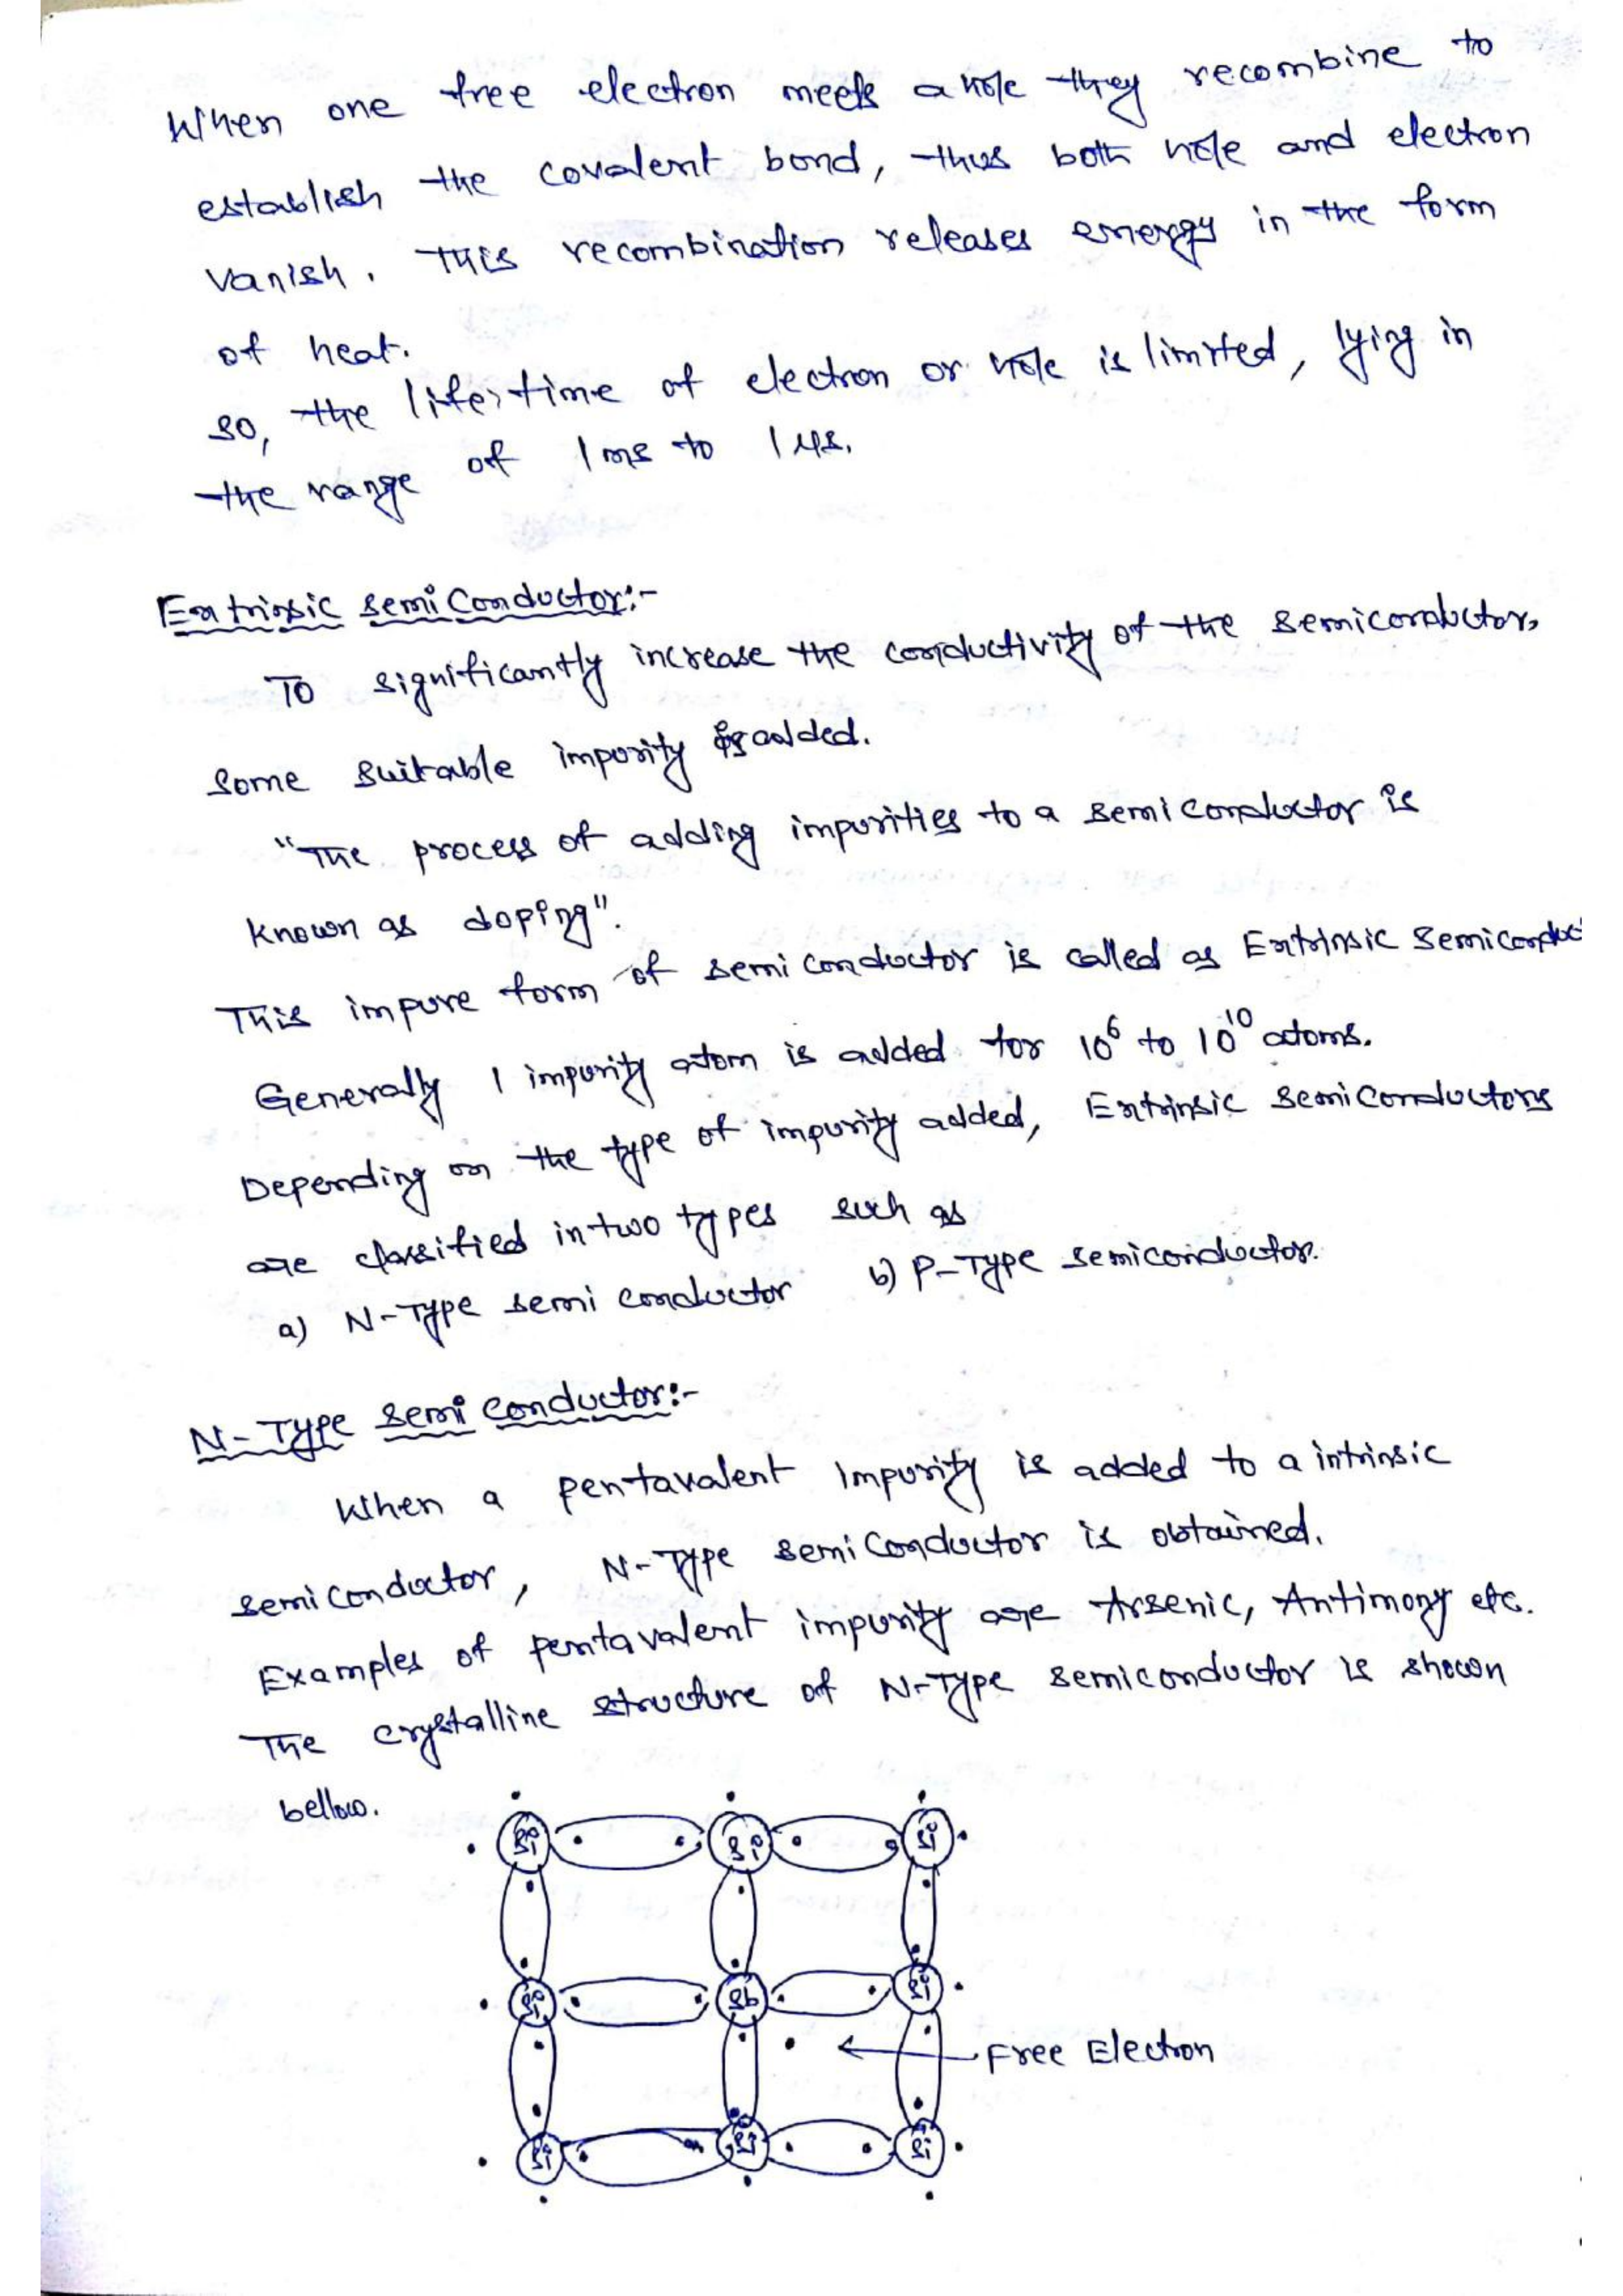 When one free electron meets a hole they recombine to
establish the covalent bond, thus both hole and electron
vanish. This recombination releases energy in the form
of heat.
so, the life, time of electron or hole is limited, lying in
the range of 1 ms to 1 μs.
Extrinsic semi Conductor:-
To significantly increase the conductivity of the semiconductor,
some suitable impurity is added.
"The process of adding impurities to a semi conductor is
known as doping".
This impure form of semi conductor is called as Extrinsic semiconduc
Generally 1 impurity atom is added for 10⁶ to 10¹⁰ atoms.
Depending on the type of impurity added, Extrinsic semi Conductors
are classified in two types such as
a) N-Type semi conductor b) P-Type semiconductor.
N-Type semi conductor:-
When a pentavalent impurity is added to a intrinsic
semi conductor, N-Type semi Conductor is obtained.
Examples of pentavalent impurity are Arsenic, Antimony etc.
The crystalline structure of N-Type semiconductor is shown
bellow.
Si Si Si
Si Sb Si
Free Electron
Si Si Si